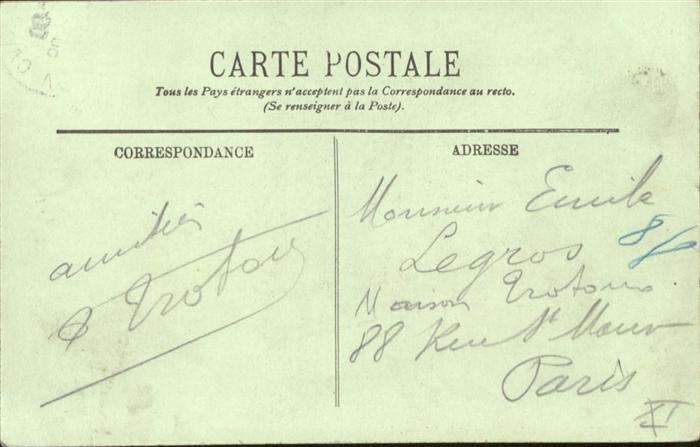 CARTE POSTALE
Tous les Pays étrangers n'acceptent pas la Correspondance au recto.
(Se renseigner à la Poste).
CORRESPONDANCE
amitiés
ADRESSE
Monsieur Emile
Legros
Maison
88 Rue St Maur
Paris
XI